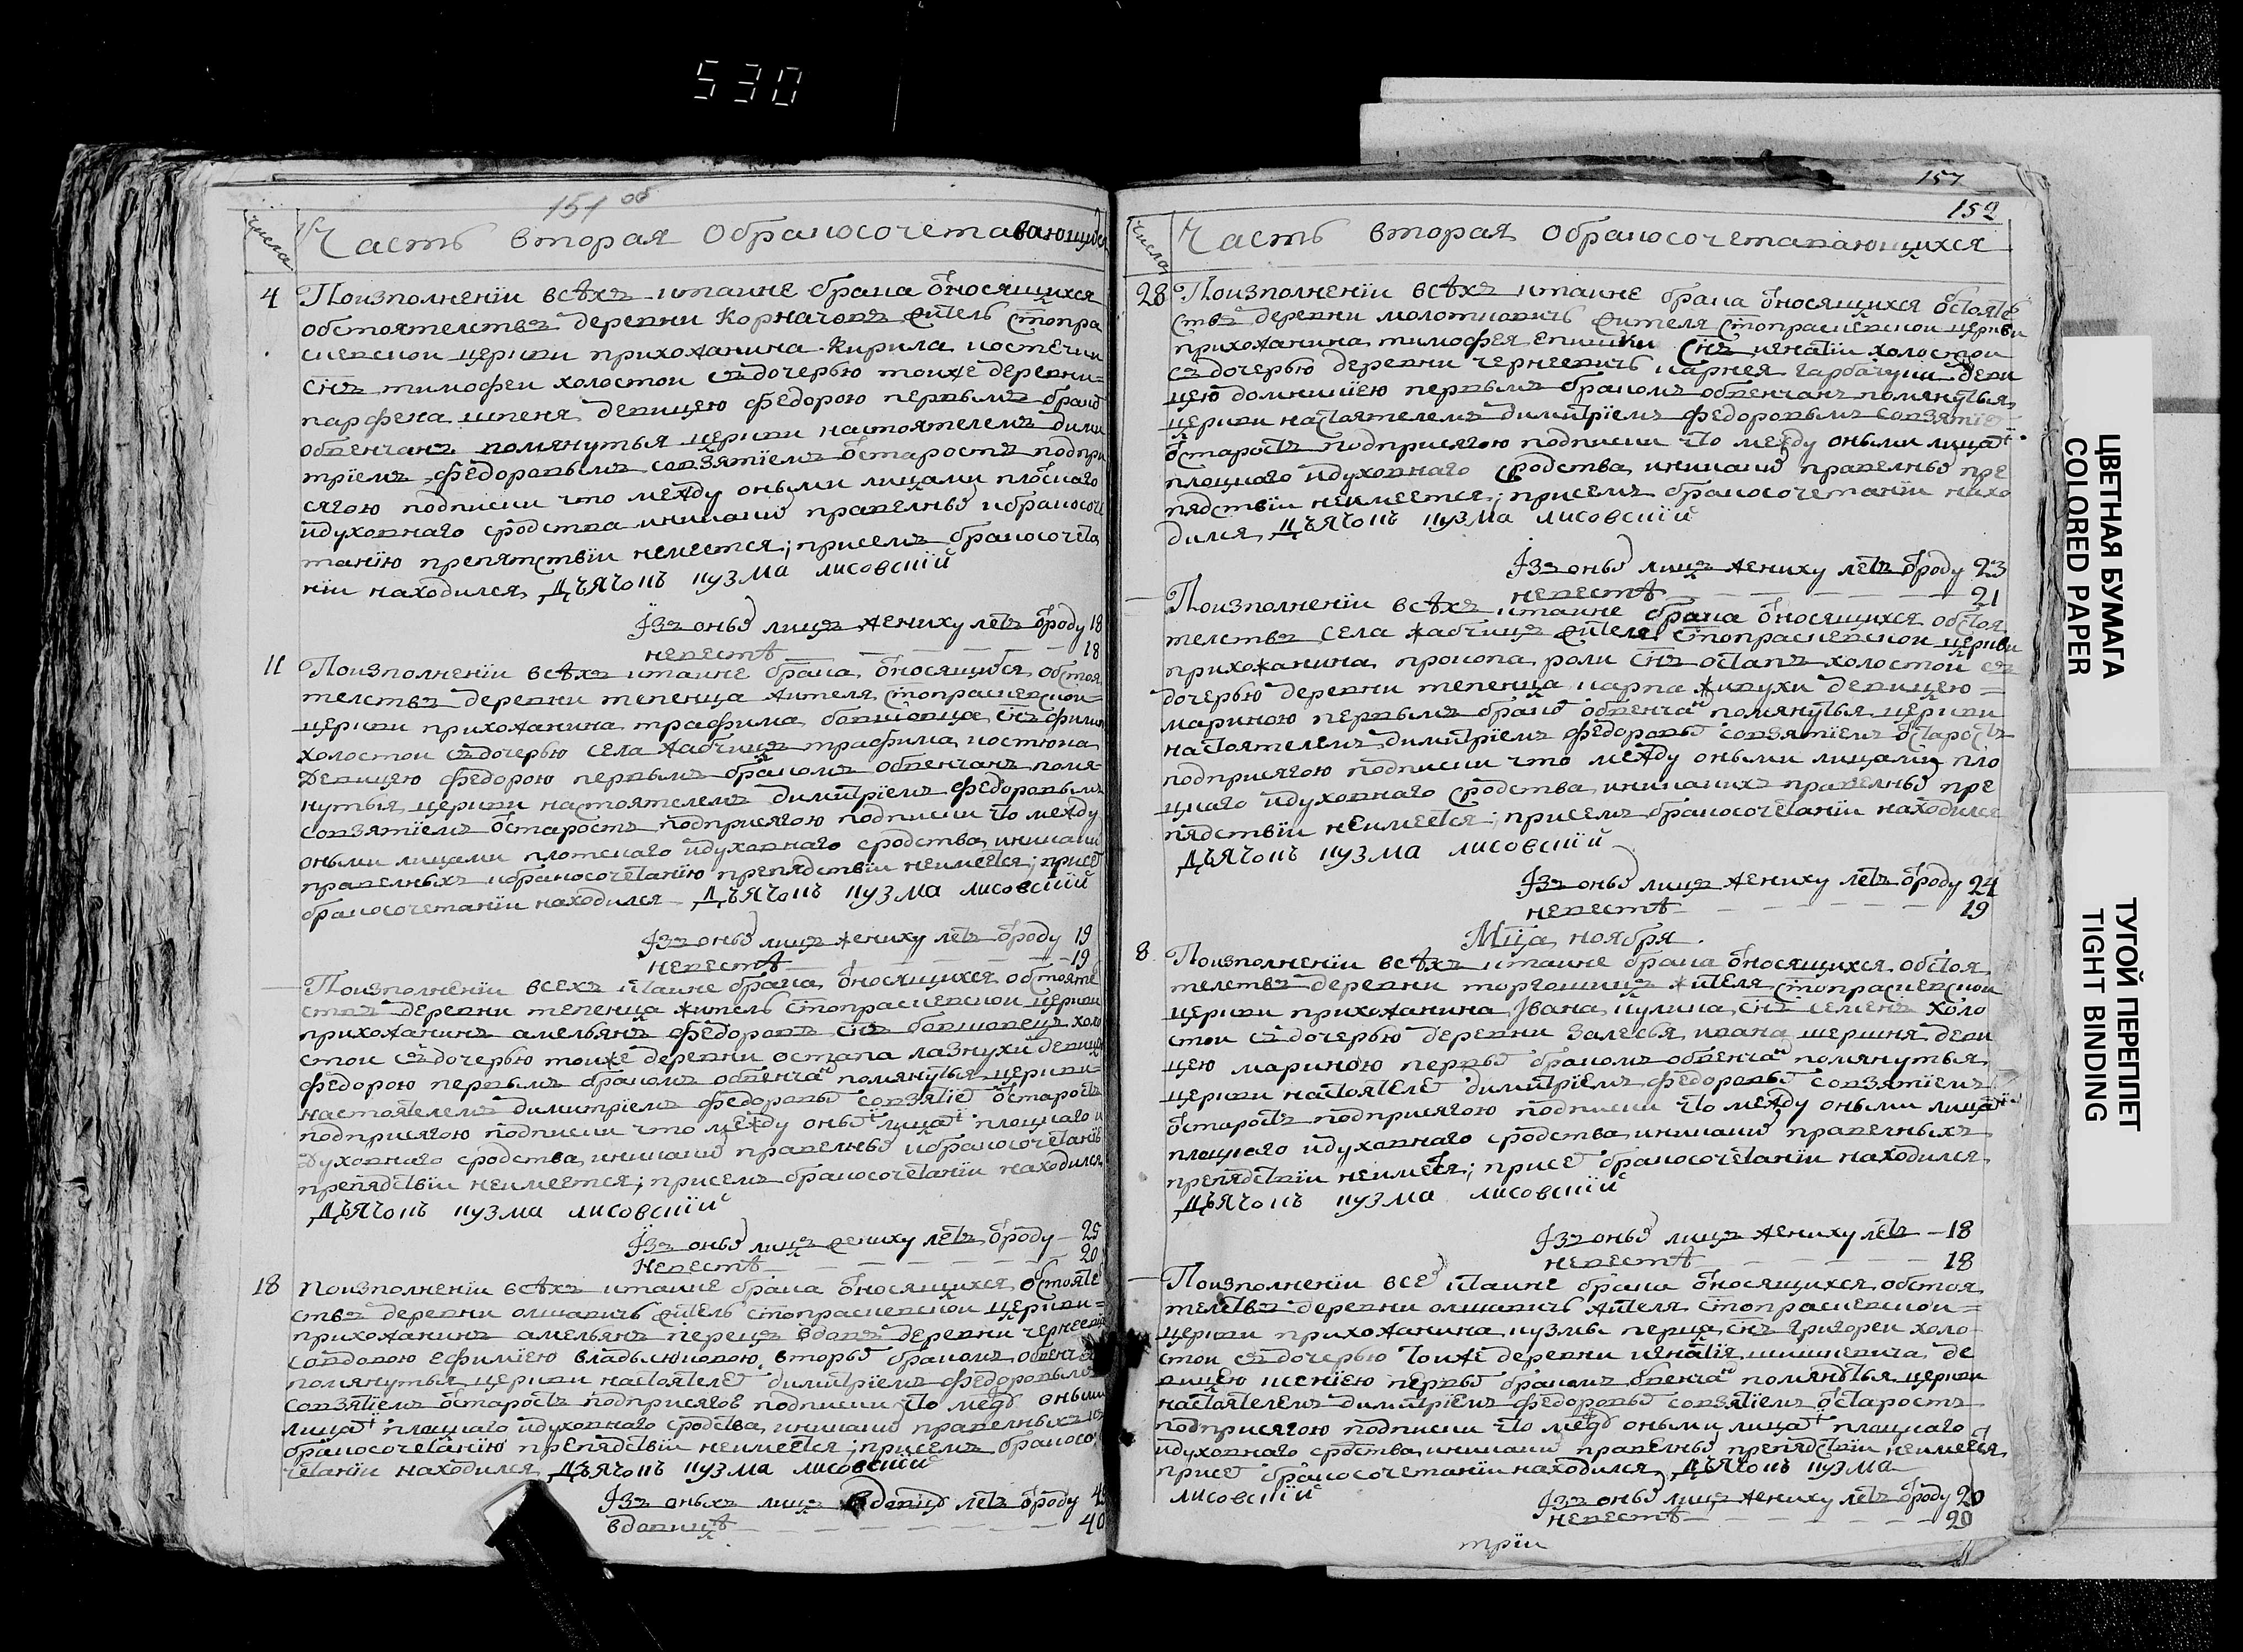 530
151 об
числа
Часть вторая Обракосочетавающихся
4 Поизполненїи всѣхъ ктаине брака ѿносящихся
обстоятелствъ деревни Корначовъ житель стопра
скевской церкви прихожанина Кирила костечки
снъ тимофеи холостои съдочерью тоиже деревни
парфена шпеня девицею федорою первымъ брако
обвенчанъ помянутыя церкви настоятелемъ дими
трїемъ федоровымъ совзятїемъ ѿстаростъ подпри
сягою подписки что между оными лицами плоскаго
идуховнаго сродства иникакихъ правелныхъ ибракосоче
танїю препятствїи неимеется; присемъ бракосочета
нїи находился дьячокъ кузма лисовскїй
Їзъ оныхъ лицъ жениху летъ ѿроду 18
невестѣ 18
11 Поизполненїи всѣхъ ктаине брака ѿносящихся обстоя
телствъ деревни тепенца жителя стопраскевскои
церкви прихожанина трафима борщовца снъ филип
холостои съдочерью села жабчицъ трафима костюка
Девицею федорою первымъ бракомъ обвенчанъ помя
нутыя церкви настоятелемъ димитрїемъ федоровымъ
совзятїемъ ѿстаростъ подприсягою подписки что между
оными лицами плотскаго идуховнаго сродства иникаки
правелныхъ ибракосочетанїю препядствїи неимется; присе
бракосочетанїи находился Дьячокъ кузма лисовскїй
Їзъ оныхъ лицъ жениху летъ ѿроду 19
невестѣ 19
Поизполненїи всехъ ктаине брака ѿносящихся обстояте
ствъ деревни тепенца житель стопраскевскои церкви
прихожанинъ амельянъ федоровъ снъ борщовецъ холо
стои съдочерью тоиже деревни остапа лазнухи девице
федорою первымъ бракомъ обвенчанъ помянутыя церкви
настоятелемъ димитрїемъ федоровымъ совзятїе ѿстаростъ
подприсягою подписки что между оными лицами плоцкаго и
Духовнаго сродства иникакихъ правелныхъ ибракосочетанїю
препядствїи неимеется; присемъ бракосочетанїи находился
Дьячокъ кузма лисовскїй
Їзъ оныхъ лицъ жениху летъ ѿроду 25
Невестѣ 20
18 Поизполненїи всѣхъ ктаине брака ѿносящихся обстояте
ствъ деревни олшавичъ житель стопраскевскои церкви
прихожанинъ амельянъ перецъ вдовъ деревни чернееви
совдовою Ефимїею владылюковою вторымъ бракомъ обвенча
помянутыя церкви настоятеле димитрїемъ федоровымъ
совзятїемъ ѿстаростъ подприсягою подписки что межд оными
лицами плоцкаго идуховнаго сродства иникакихъ правелныхъ
бракосочетанїю препядствїи неимеется; присемъ бракосо
четанїи находился Дьячокъ кузма лисовскїй
Їзъ оныхъ лицъ вдовцу летъ ѿроду
вдовицѣ 40
157
152
числа
Часть вторая Обракосочетавающихся
28 Поизполненїи всѣхъ ктаине брака ѿносящихся обстояте
ствъ деревни молотковичъ жителя стопраскевскои церкви
прихожанина тимофея Епишки снъ игнатїи холостои
съ дочерью деревни чернеевичъ карнея гарбачука деви
цею домникїею первымъ бракомъ обвенчанъ помянутыя
церкви настоятелемъ димитрїемъ федоровымъ совзятїе
ѿстаростъ подприсягою подписки что между оными лицами
плоцкаго идуховнаго сродства иникакихъ правелныхъ пре
пядствїи неимеется; присемъ бракосочетанїи нахо
дился Дьячокъ кузма лисовскїй
Їзъ оныхъ лицъ жениху летъ ѿроду 23
невестѣ 21
Поизполненїи всѣхъ ктаине брака ѿносящихся обстоя
телствъ села жабчицъ жителя стопраскевскои церкви
прихожанина прокопа роли снъ остапъ холостои съ
дочерью деревни тепенца карпа живухи девицею
мариною первымъ брако обвенчанъ помянутыя церкви
настоятелемъ димитрїемъ федоровымъ совзятїемъ ѿстаростъ
подприсягою подписки что между оными лицами пло
цкаго идуховнаго сродства иникакихъ правелныхъ пре
пядствїи неимеется; присемъ бракосочетанїи находился
Дьячокъ кузма лисовскїй
Їзъ оныхъ лицъ жениху летъ ѿроду 24
невестѣ 19
Мца ноября
8 Поизполненїи всѣхъ ктаине брака ѿносящихся обстоя
телствъ деревни торгошицъ жителя стопраскевскои
церкви прихожанина Ївана кулика снъ семенъ холо
стои съдочерью деревни залесья ивана шершня деви
цею мариною первымъ бракомъ обвенчанъ помянутыя
церкви настоятеле димитрїемъ федоровымъ совзятїемъ
ѿстаростъ подприсягою подписки что между оными лицами
плоцкаго идуховнаго сродства иникакихъ правелныхъ
препядствїи неимеется; присе бракосочетанїи находился
Дьячокъ кузма лисовскїй
Їзъ оныхъ лицъ жениху летъ 18
невестѣ 18
Поизполненїи всѣхъ ктаине брака ѿносящихся обстоя
телствъ деревни олшавичъ жителя стопраскевскои
церкви прихожанина кузмы перца снъ григореи холо
стои съдочерью тоиже деревни игнатїя шишкевича де
вицею ксенїею первымъ бракомъ обвенчанъ помянутыя церкви
настоятелемъ димитрїемъ федоровымъ совзятїемъ ѿстаростъ
подприсягою подписки что межд оными лицами плоцкаго
идуховнаго сродства иникакихъ правелныхъ препядствїи неимеется
присе бракосочетанїи находился Дьячокъ кузма
лисовскїй
Їзъ оныхъ лицъ жениху летъ ѿроду 20
невестѣ 20
трїи
ЦВЕТНАЯ БУМАГА
COLORED PAPER
ТУГОЙ ПЕРЕПЛЕТ
TIGHT BINDING